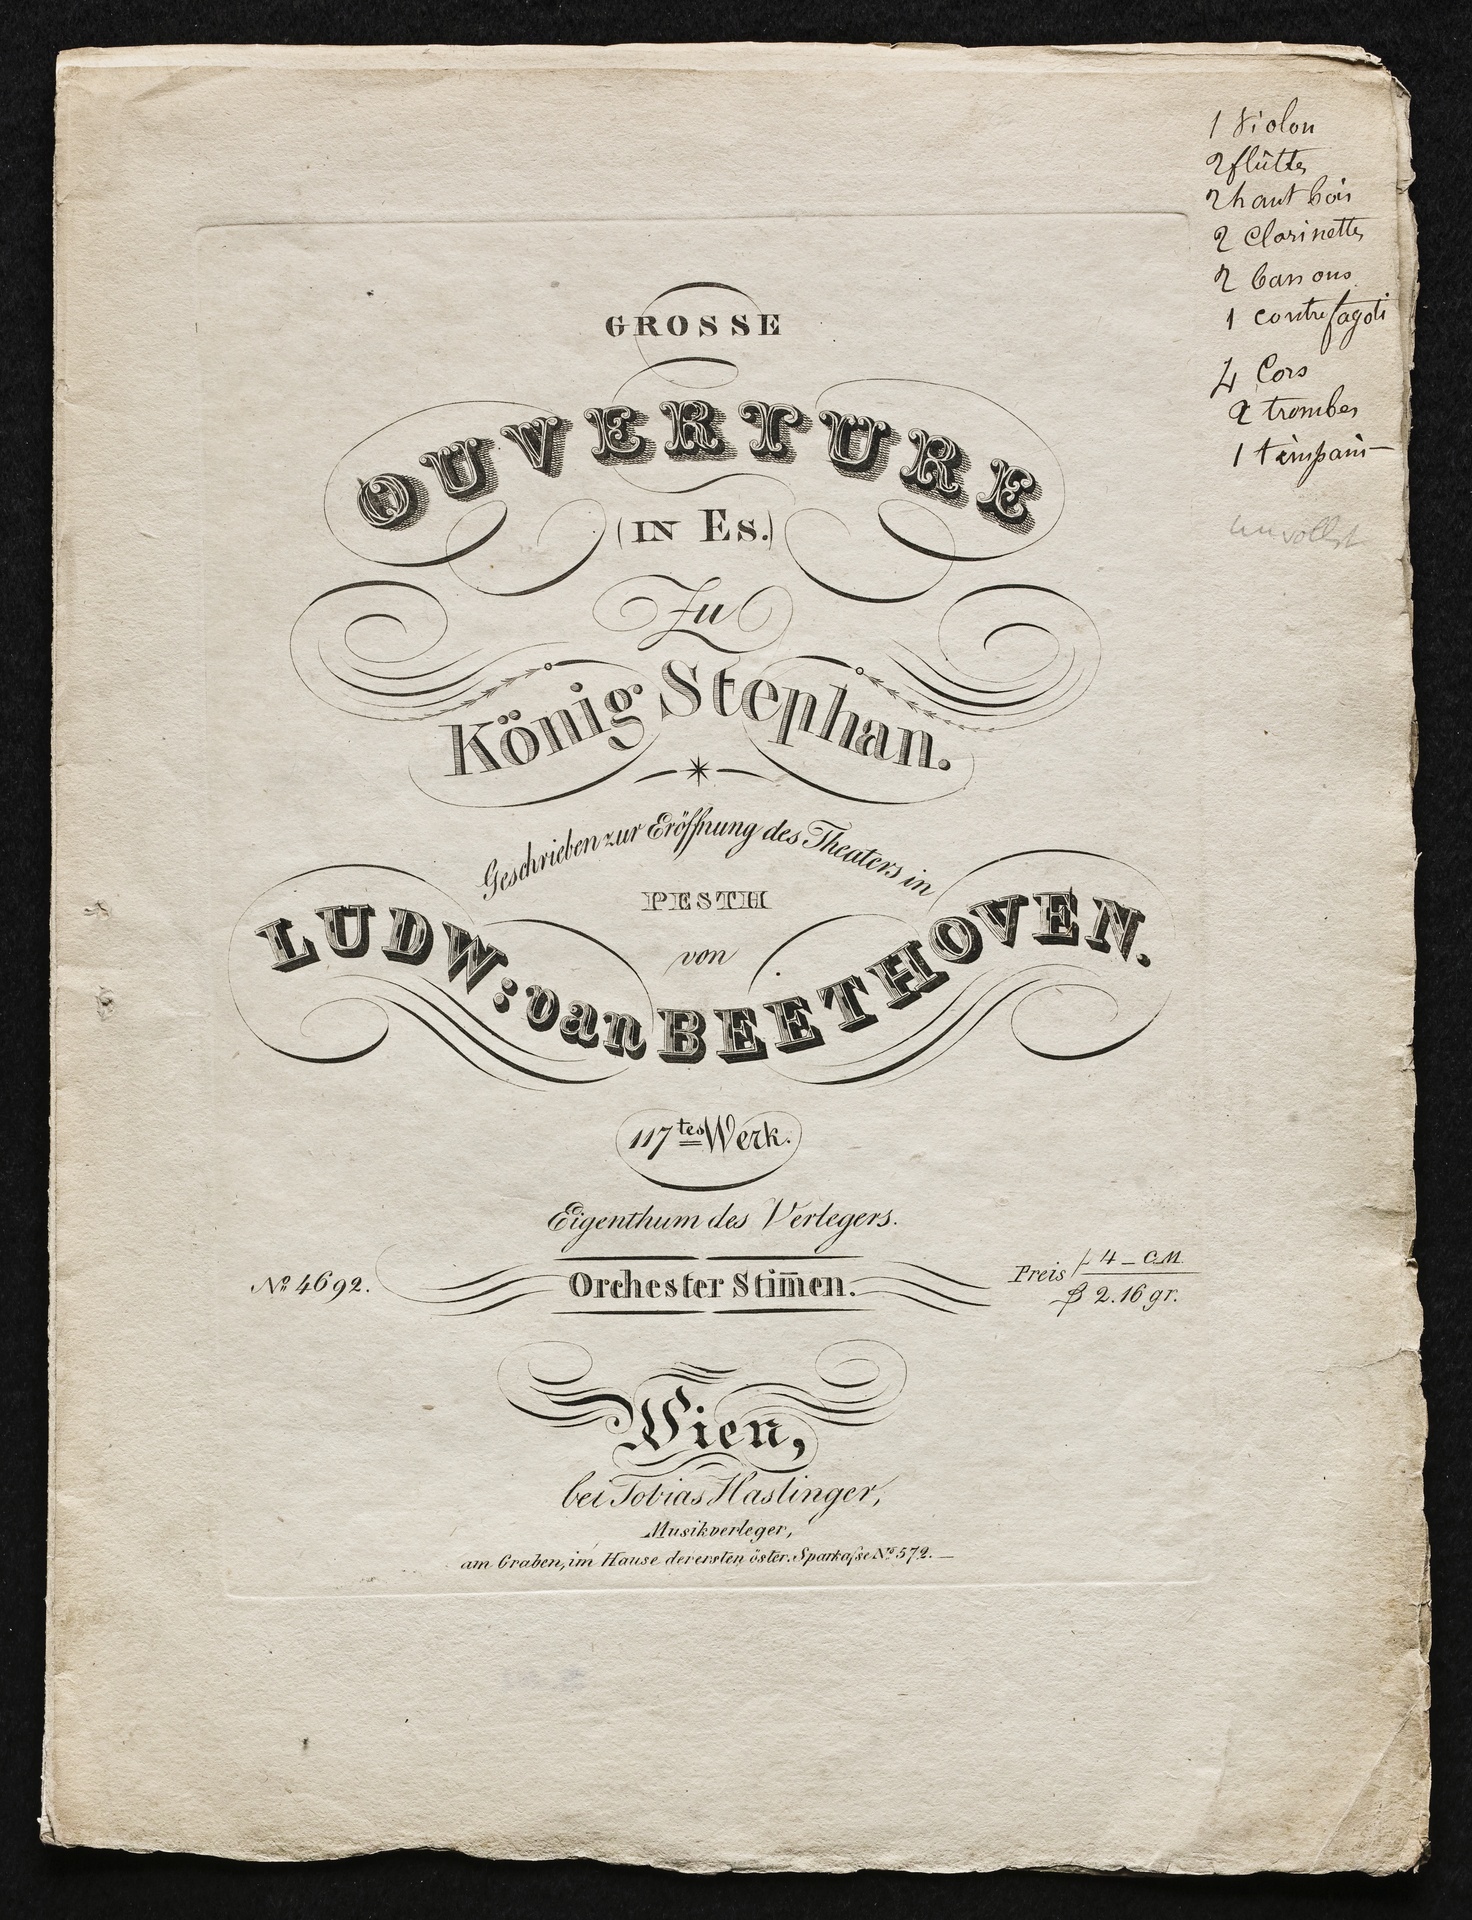 1 Violon
2 flûttes
2 hautbois
2 Clarinettes
2 bassons
1 contrefagoti
4 Cors
2 trombes
1 timpani
unvollst
GROSSE
OUVERTURE
(IN Es.)
Zu
König Stephan.
Geschrieben zur Eröffnung des Theaters in
PESTH
von
LUDW: van BEETHOVEN.
117tes Werk.
Eigenthum des Verlegers.
No 4692.
Orchester Stim̅en.
Preis f 4 - C.M.
2.16 gr.
Wien,
bei Tobias Haslinger,
Musikverleger,
am Graben, im Hause der ersten öster. Sparkaſse No 572.